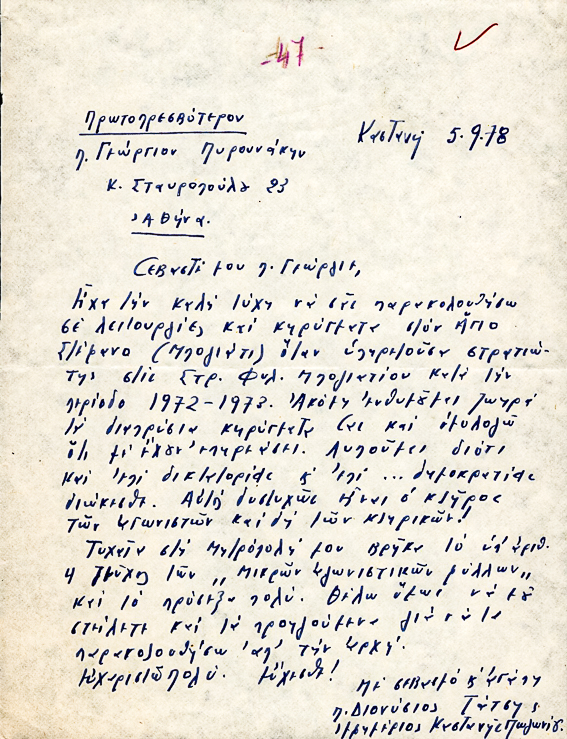 47
Πρωτοπρεσβύτερον
π. Γεώργιον Πυρουνάκην
Κ. Σταυροπούλου 23
Ἀθήνα.
Καστανή 5.9.78
Σεβαστέ μου π. Γεώργιε,
Εἶχα τήν καλή τύχη νά σᾶς παρακολουθήσω
σέ λειτουργίες καί κηρύγματα στόν Ἅγιο
Στέφανο (Μπογιάτι) ὅταν ὑπηρετοῦσα στρατιώ-
της στίς Στρ. Φυλ. Μπογιατίου κατά τήν
περίοδο 1972-1973. Ἀκόμη ἐνθυμοῦμαι ζωηρά
τά διαπρύσια κηρύγματά σας καί ὁμολογῶ
ὅτι μέ ἔχουν ἐπηρεάσει. Λυποῦμαι διότι
καί ἐπί δικτατορίας κ' ἐπί ... δημοκρατίας
διώκεσθε. Αὐτός δυστυχῶς εἶναι ὁ κλῆρος
τῶν ἀγωνιστῶν καί δή τῶν κληρικῶν!
Τυχαῖα στή Μητρόπολή μου βρῆκα τό ὑπ' ἀριθ.
4 τεῦχος τῶν „Μικρῶν ἀγωνιστικῶν φύλλων„
καί τό πρόσεξα πολύ. Θέλω ὅμως νά μοῦ
στείλετε καί τά προηγούμενα γιά νά τά
παρακολουθήσω ἀπ' τήν ἀρχή.
Εὐχαριστῶ πολύ. Εὔχεσθε!
Μέ σεβασμό κ' ἀγάπη
π. Διονύσιος Τάτσης
ἐφημέριος Καστανῆς Πωγωνίου.